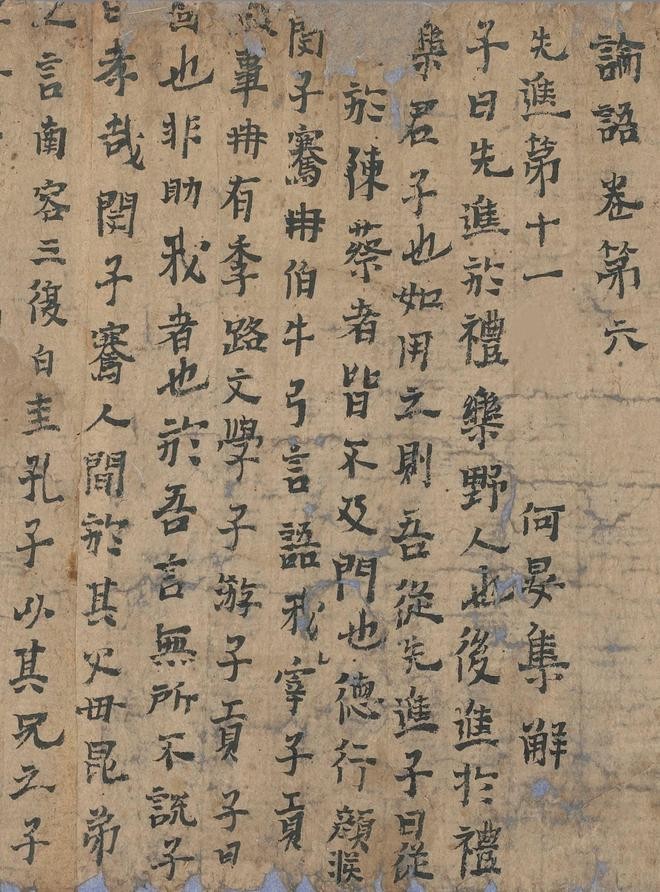 論語卷第六
先進第十一 何晏集解
子曰先進於禮樂野人也後進於禮
樂君子也如用之則吾從先進子曰從
於陳蔡者皆不及門也德行顏
閔子騫冉伯牛弓言語我宰子貢
事冉有季路文學子游子貢子曰
回也非助我者也於吾言無所不說子
曰孝哉閔子騫人間於其父毋昆弟
之言南容三復白圭孔子以其兄之子